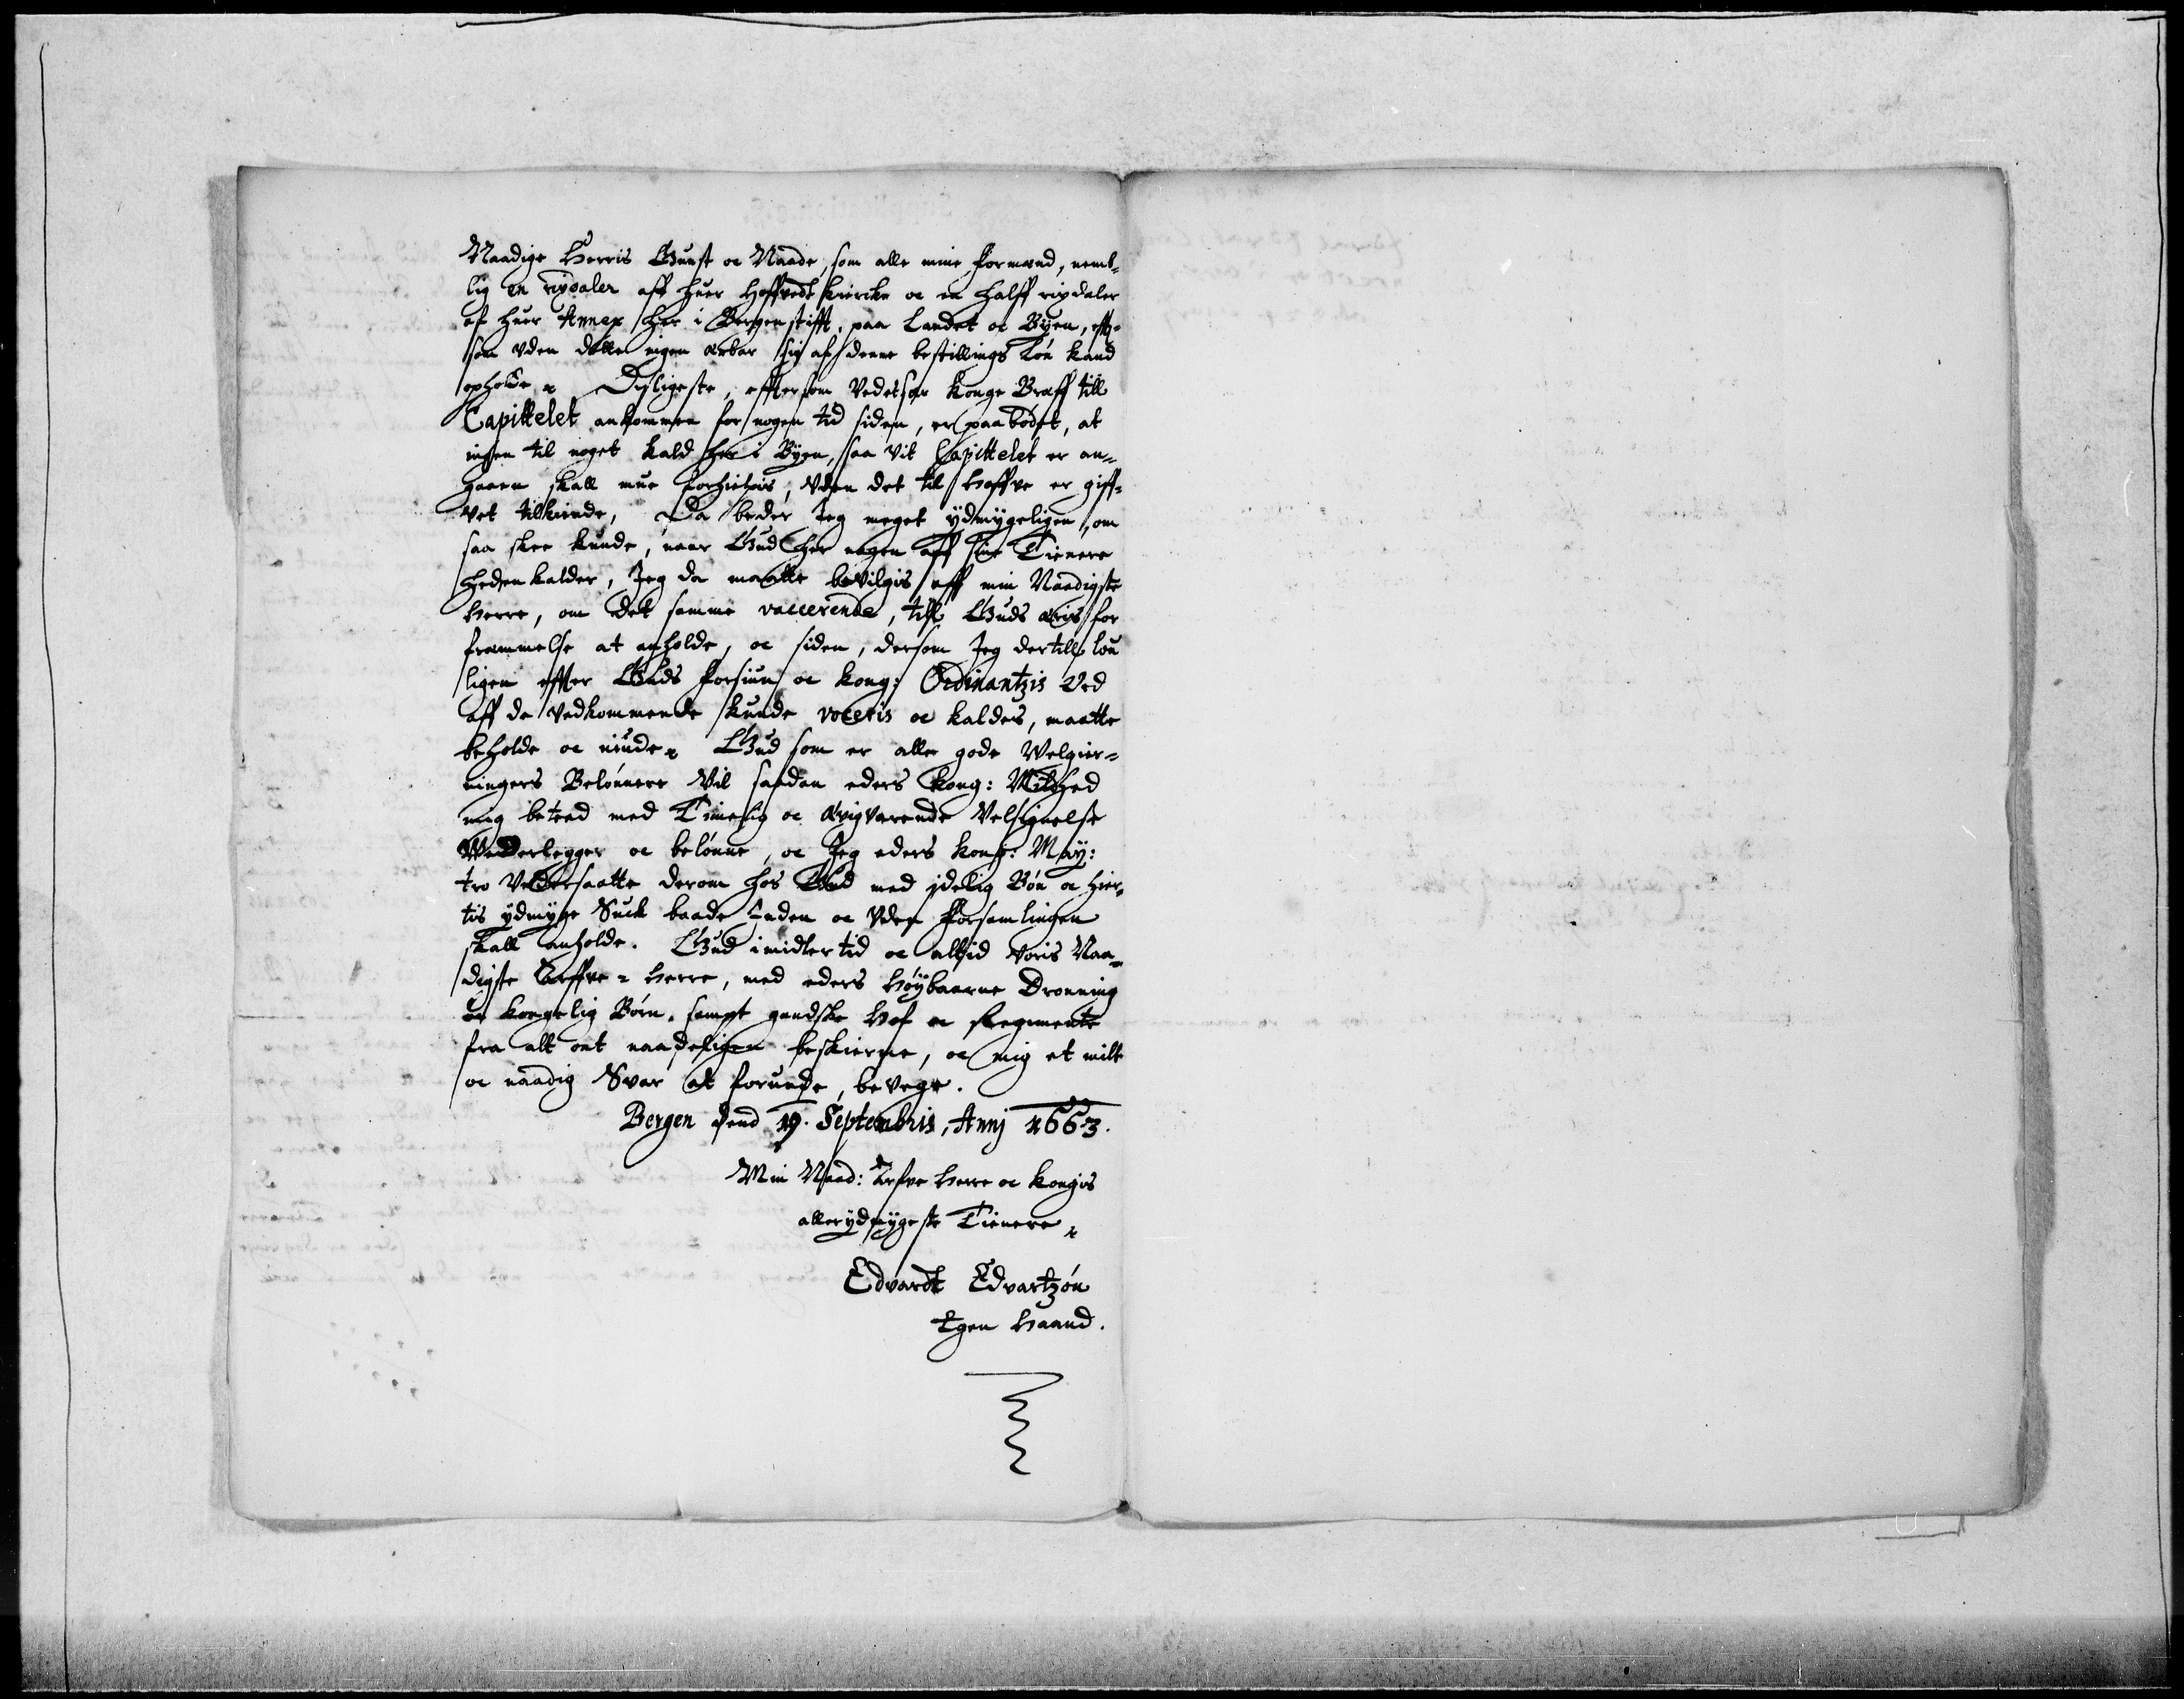 Naadige Herris Gunst oc Naade, som alle mine formænd, nemb-
lig en rixdaler aff huer Hoffvedt kiercke oc en halff rixdaler
af huer Annex her i Bergenstifft, paa Landet oc Byen, efft-
som vden dette ingen ærbar sig af denne bestillings Løn kand
opholde. Disligeste, efftersom Konge Breff till
Capittelet ankommen for nogen tid siden, er paabødet, at
ingen til noget kald her i Byen, saa vit Capittelet er an-
gaaen skall mue forhielpis, vden det til Hoffve er giff-
vet tilkiende, Da beder Jeg meget ydmygeligen, om
saa skee kunde, naar Gud her nogen aff sine Tienere
hedenkalder, Jeg da maatte bevilgis aff min Naadigste
Herre, om det samme vaccerende, till Guds æris for
fremmelse at anholde, oc siden, dersom Jeg dertill lou
ligen effter Guds forsiun oc kong: Ordinantzis Ved
aff de vedkommende kunde voceris oc kaldes, maatte
beholde oc niude. Gud som er alle gode Welgier-
ningers Belønnere Vil saadan eders kong: Mildhed
mig beteed med Timelig oc ævigvarende Velsignelse
Wedderlegger oc belønne, oc Jeg eders kong: May:
tro Vndersaatte derom hos Gud med jdelig Bøn oc hier-
tis ydmyge Suck baade Inden oc Vden Forsamlingen
skall anholde. Gud imidlertid oc altid voris Naa-
digste Arffve-Herre, med eders Høybaarne Dronning
oc kongelig Børn, sampt gandske Hof oc Regimente
fra alt ont naadeligen beskierme, oc mig et milt
oc naadig Svar at forunde, bevege.
Bergen dend 19. Septembris, Annj 1663.
Min Naad: Arfve Herre oc Kongis
allerydmygeste Tienere,
Edvardt Edvartzøn
Egen Haand.